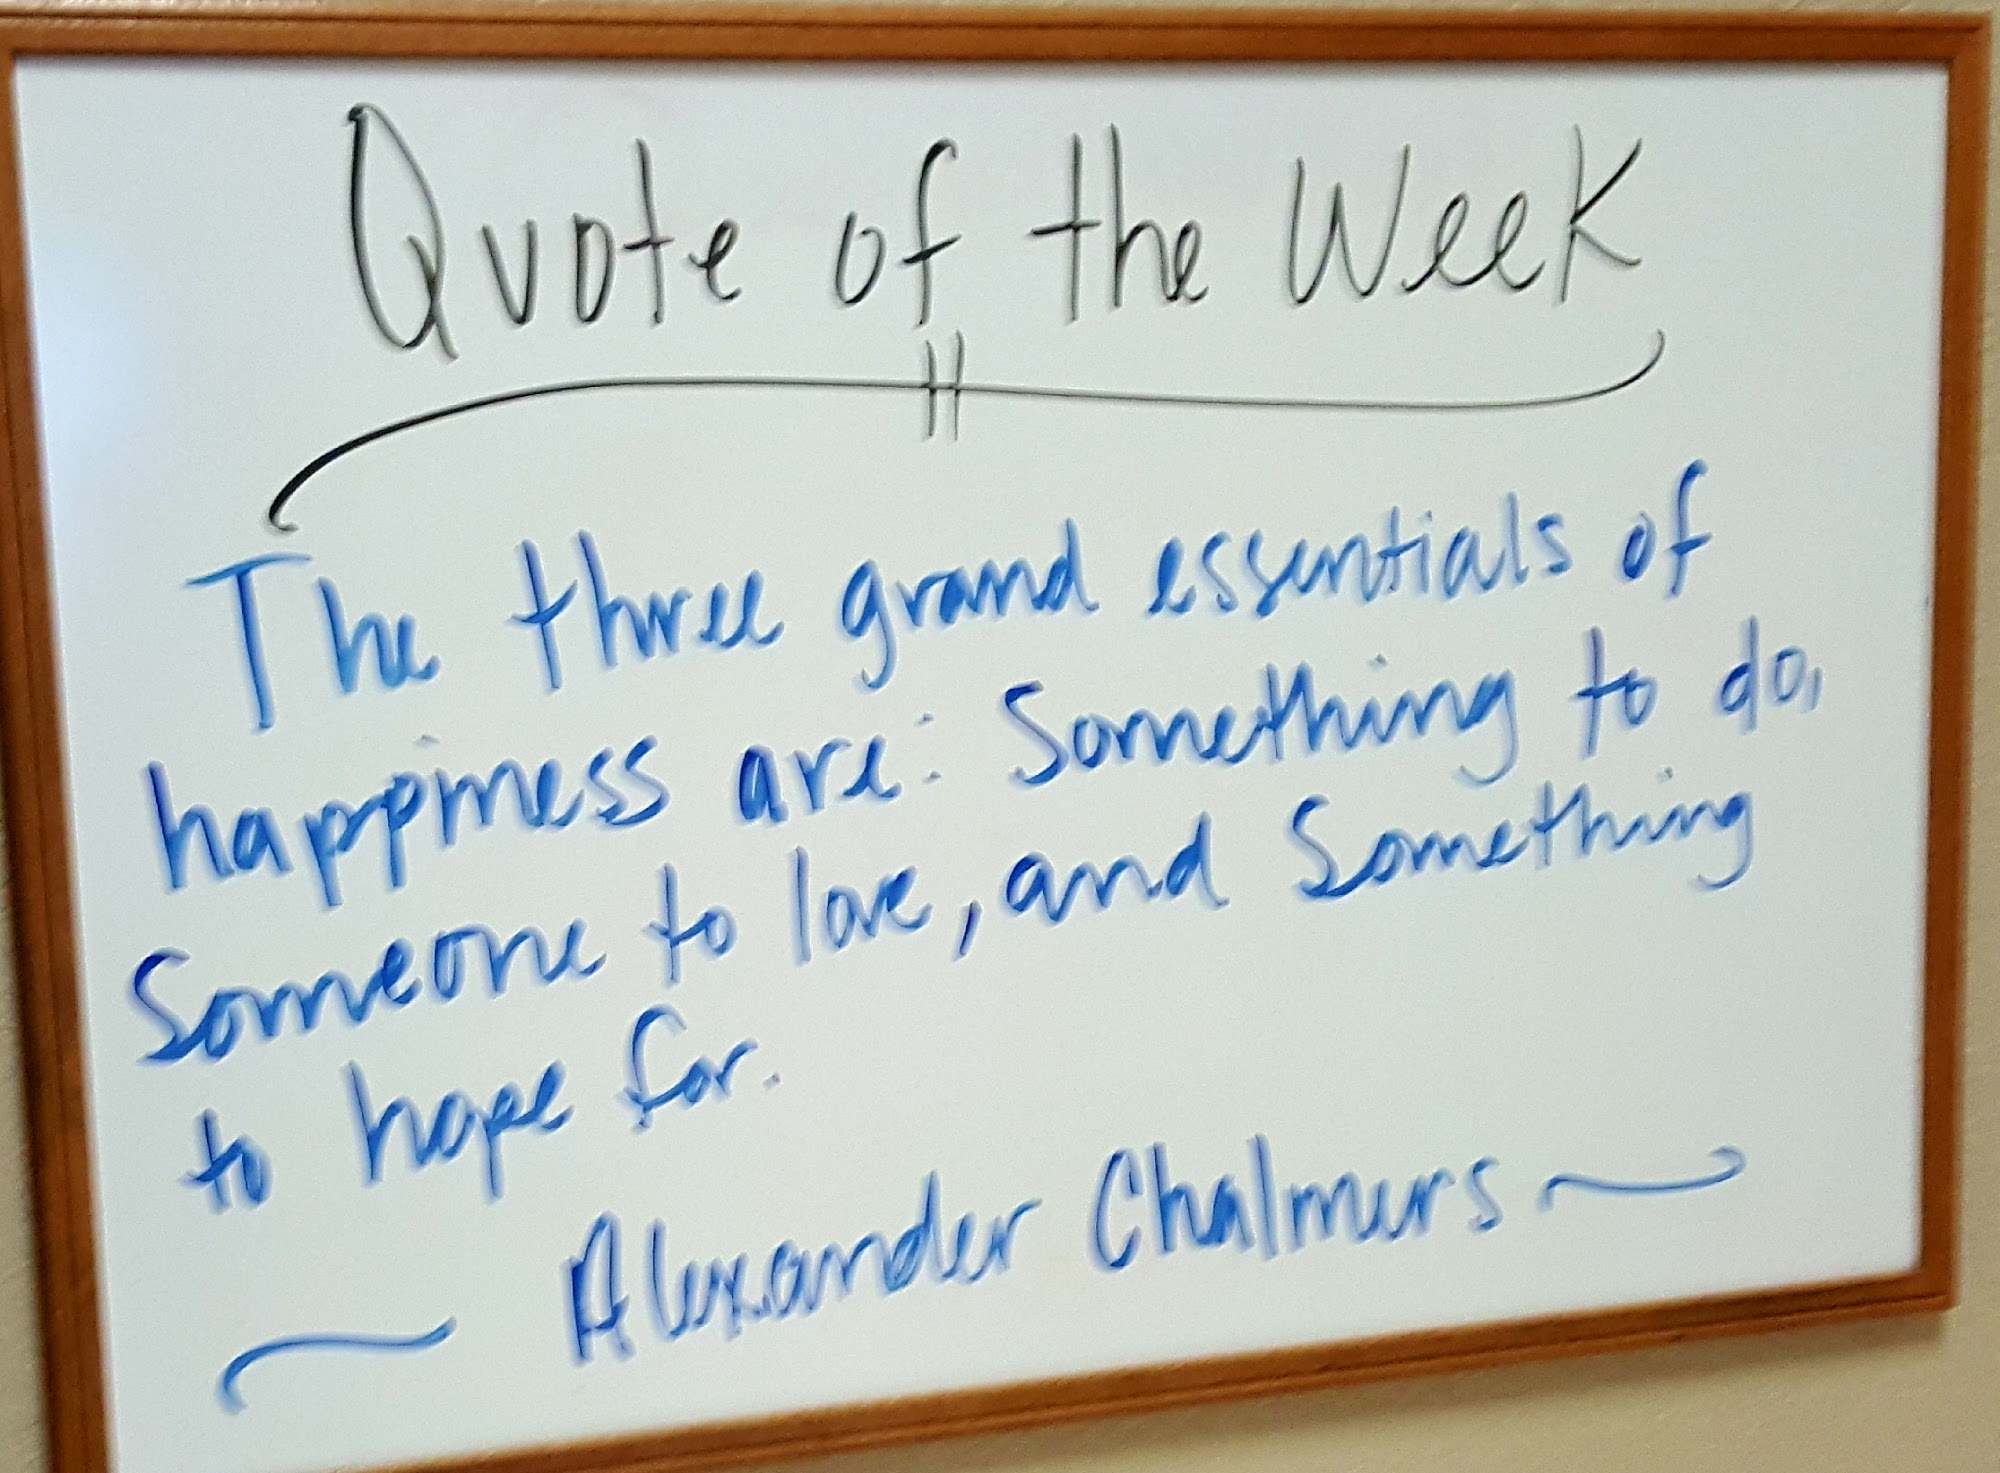 Quote of the Week
The three grand essentials of
happiness are: Something to do,
Someone to love, and Something
to hope for.
Alexander Chalmers